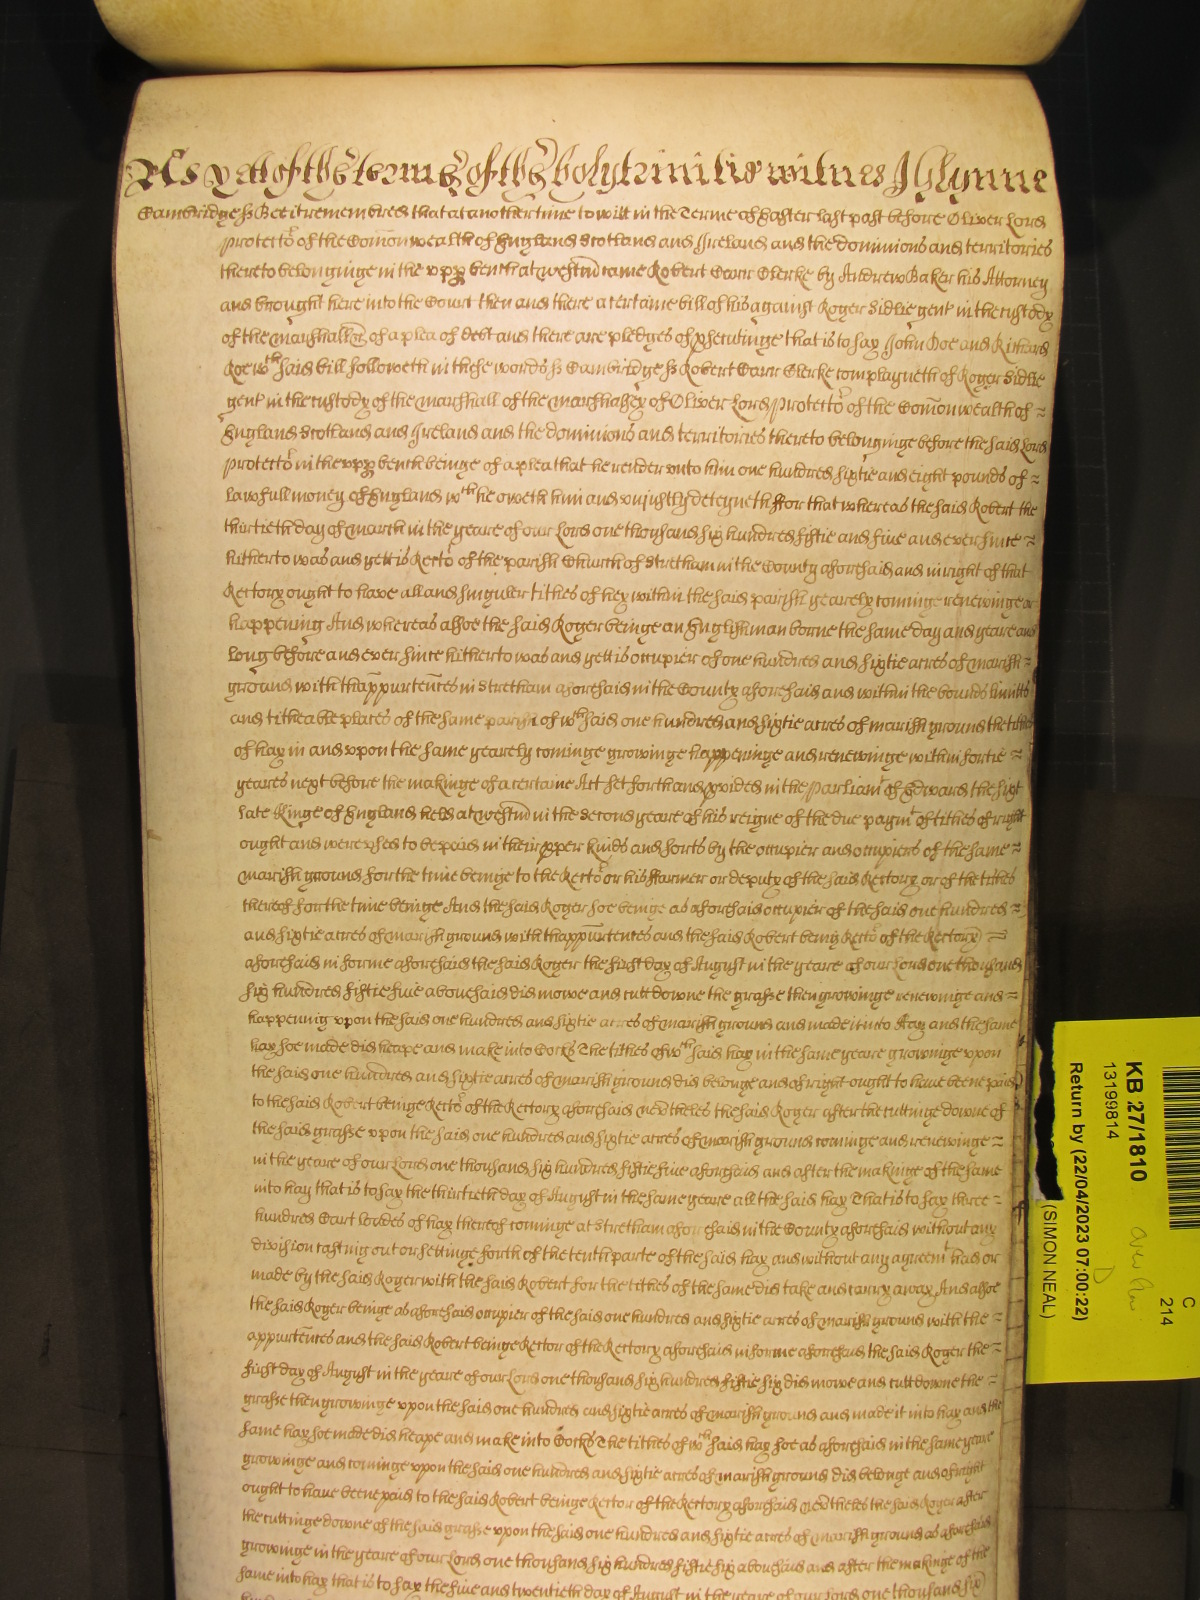 As yett of the terme of the holy trinitie witnes J Glynne
Cambridge ss Bee it remembred that at another time to witt in the Terme of Easter last past before Oliver Lord
Protector of the Comonwealth of England Scotland and Ireland and the dominions and territories
thereto belonginge in the upper bench at westm came Robert Carr Clerke by Andrew Baker his Attorney
and brought here into the Court then and there a certaine bill of his against Roger Sidlie gent in the custody
of the marshall etc of a plea of debt and there are pledges of p̱secutinge that is to say John Doe and Richard
Roe wch said bill followeth in these words ss Cambridge ss Robert Carr Clerke complayneth of Roger Sidlie
gent in the custody of the marshall of the marshalsey of Oliver Lord Protector of the Comonwealth of
England Scotland and Ireland and the dominions and territories thereto belonginge before the said Lord
Protector in the upper bench beinge of a plea that he render unto him one hundred sixtie and eight pounds of
lawfull money of England wch he oweth him and unjustly deteyneth ffor that whereas the said Robert the
thirtieth day of march in the yeare of our Lord one thousand six hundred fiftie and five and ever since
hitherto was and yett is Rector of the parish Church of Stretham in the County aforesaid and in right of that
Rectory ought to have all and singuler tithes of hey within the said parish yearely cominge renewinge or
happening And whereas alsoe the said Roger beinge an Englishman borne the same day and yeare and
long before and ever since hitherto was and yett is occupier of one hundred and sixtie acres of marish
ground with thappurtences in Stretham aforesaid in the County aforesaid and within the bounds limitts
and titheable places of the same parish of wch said one hundred and sixtie acres of marish ground the tithes
of hay in and upon the same yearely cominge growinge happeninge and renewinge within fortie
yeares next before the makinge of a certaine Act set forth and p̱vided in the Parliamt of Edward the sixt
late Kinge of England held at westm in the second yeare of his reigne of the due paymt of tithes of right
ought and were used to be paid in their p̱per kinds and sorts by the occupier and occupiers of the same
marish ground for the time beinge to the Rector or his ffarmer or deputy of the said Rectory or of the tithes
thereof for the time beinge And the said Roger soe beinge as aforesaid occupier of the said one hundred
and sixtie acres of marish ground with thappurtences and the said Robert being Rector of the Rectory
aforesaid in forme aforesaid the said Roger the first day of August in the yeare of our Lord one thousand
six hundred fiftie five abovesaid did mowe and cutt downe the grasse then growinge renewinge and
happening upon the said one hundred and sixtie acres of marish ground and made it into Hay and the same
hay soe made did heape and make into Cocks The tithes of wch said hay in the same yeare growinge upon
the said one hundred and sixtie acres of marish ground did belonge and of right ought to have beene paid
to the said Robert beinge Rector of the Rectory aforesaid nevtheles the said Roger after the cuttinge downe of
the said grasse upon the said one hundred and sixtie acres of marish ground cominge and renewinge
in the yeare of our Lord one thousand six hundred fiftie five aforesaid and after the makinge of the same
into hay that is to say the thirtieth day of August in the same yeare all the said hay That is to say three
hundred Cart loades of hay thereof cominge at Stretham aforesaid in the County aforesaid without any
division casting out or settinge forth of the tenth parte of the said hay and without any agreemt had or
made by the said Roger with the said Robert for the tithes of the same did take and carry away And alsoe
the said Roger beinge as aforesaid occupier of the said one hundred and sixtie acres of marish ground with the
appurtences and the said Robert beinge Rector of the Rectory aforesaid in forme aforesaid the said Roger the
first day of August in the yeare of our Lord one thousand six hundred fiftie six did mowe and cutt downe the
grasse then growinge upon the said one hundred and sixtie acres of marish ground and made it into hay and the
same hay soe made did heape and make into Cocks The tithes of wch said hay soe as aforesaid in the same yeare
growinge and cominge upon the said one hundred and sixtie acres of marish ground did belonge and of right
ought to have beene paid to the said Robert beinge Rector of the Rectory aforesaid nevtheles the said Roger after
the cuttinge downe of the said grasse upon the said one hundred and sixtie acres of marish ground as aforesaid
growinge in the yeare of our Lord one thousand six hundred fiftie six abovesaid and after the makinge of the
same into hay that is to say the five and twentieth day of August in the yeare of our Lord one thousand six
KB 27/1810
13199814
Return by (22/04/2023 07:00:22)
(SIMON NEAL)
C
214
D